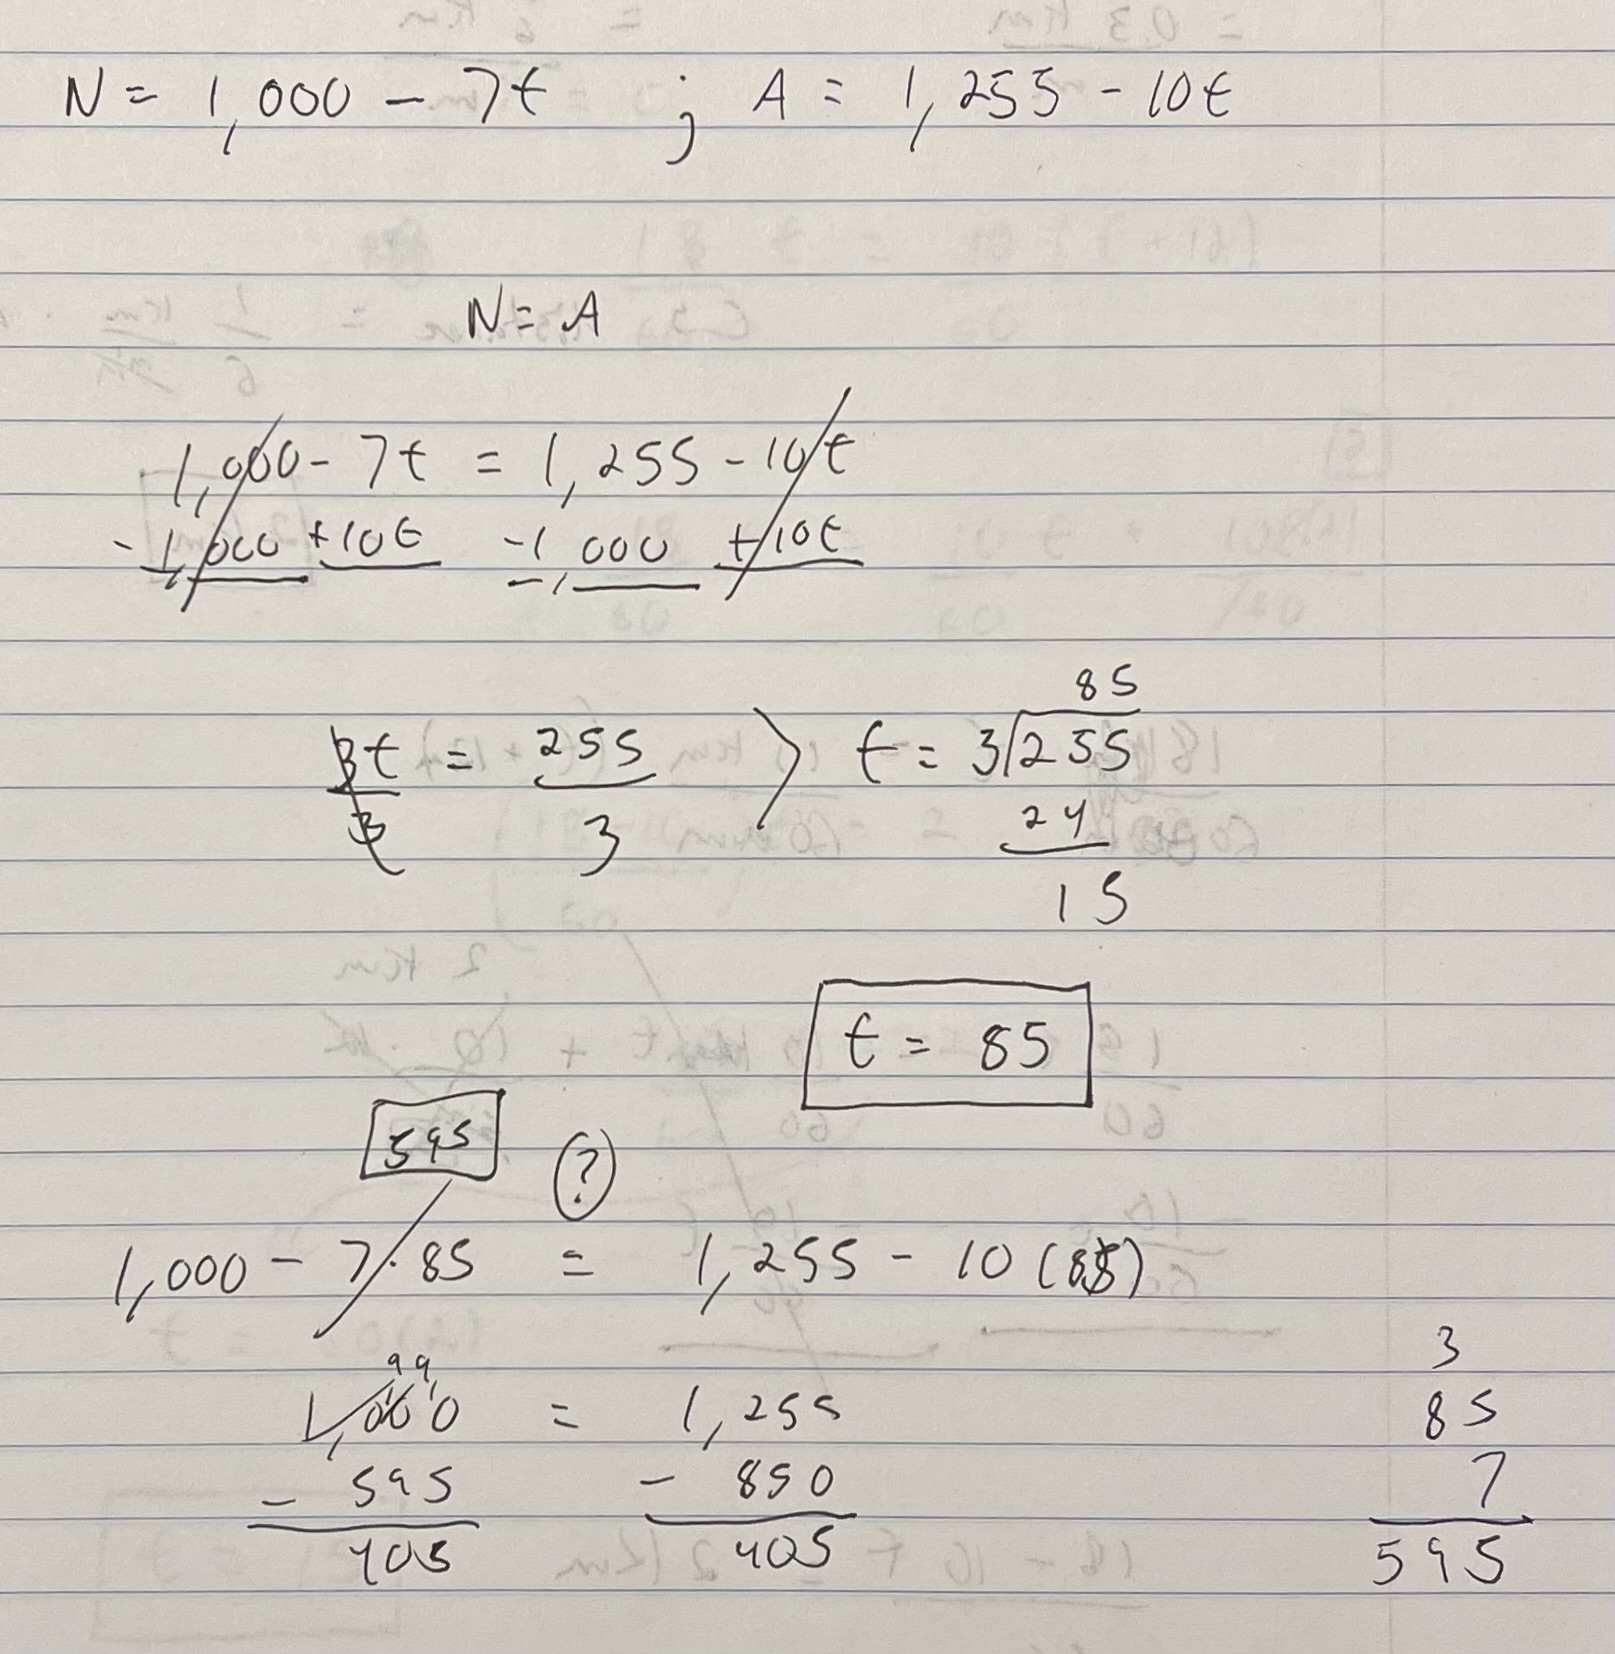 N = 1,000 - 7t ; A = 1,255 - 10t
N = A
1,000 - 7t = 1,255 - 10t
-1,000 +10t -1,000 +10t
3t = 255 > t = 3)255
3 3 85
24
15
t = 85
595 ?
1,000 - 7·85 = 1,255 - 10(85)
99
1,000 = 1,255
- 595 - 850
405 405
3
85
7
595